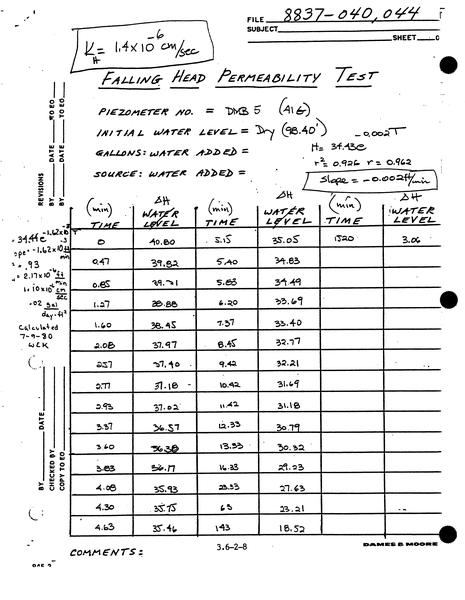 FILE 8837-040,044
SUBJECT
SHEET
K_H = 1.4x10^-6 cm/sec
FALLING HEAD PERMEABILITY TEST
PIEZOMETER NO. = DMB 5 (416)
INITIAL WATER LEVEL = Dry (98.40')
GALLONS: WATER ADDED =
H = 34.43e^-0.002T
r² = 0.926 r = 0.962
SOURCE: WATER ADDED =
Slope = -0.002 ft/min
REVISIONS
BY DATE TO EO
BY DATE TO EO
(min) TIME ΔH WATER LEVEL (min) TIME ΔH WATER LEVEL (min) TIME ΔH WATER LEVEL
0 40.80 5.15 35.05 1520 3.06
0.47 39.82 5.40 34.83
0.85 5.83 34.49
1.27 38.88 6.20 33.69
1.60 38.45 7.37 33.40
2.08 37.97 8.45 32.77
2.57 37.40 9.42 32.21
2.77 37.18 10.42 31.69
2.93 37.02 11.42 31.18
3.37 36.57 12.33 30.79
3.60 36.38 13.33 30.32
3.83 36.17 16.33 29.23
4.08 35.93 23.33 27.63
4.30 35.75 63 23.21
4.63 35.46 143 18.52
= .93
= 2.17x10^-6 ft/min
1.10x10^-6 cm/sec
.02 gal/day-ft²
Calculated
7-9-80
WCK
BY DATE
CHECKED BY
COPY TO EO
COMMENTS:
3.6-2-8
DAMES & MOORE